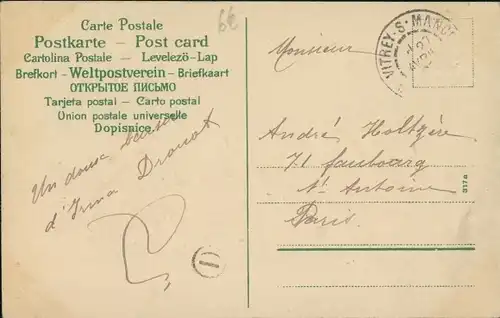 Carte Postale
Postkarte — Post card
Cartolina Postale — Levelező-Lap
Brefkort - Weltpostverein - Briefkaart
ОТКРЫТОЕ ПИСЬМО
Tarjeta postal — Carto postal
Union postale universelle
Dopisnice
Un doux baiser
d'Irma Drouot
62
Monsieur
VITREY-S-MANCE
André Holtgère
71 faubourg
St Antoine
Paris
317a